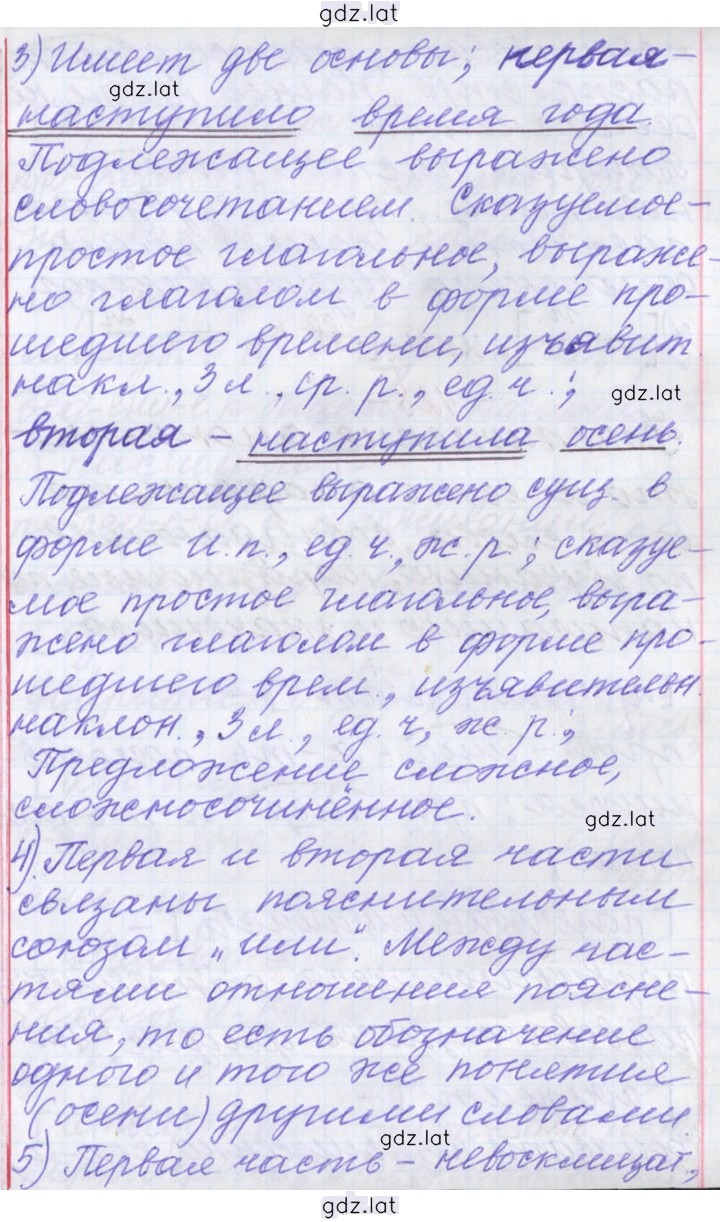 gdz.lat
3) Имеет две основы; первая-
gdz.lat
наступило время года.
Подлежащее выражено
словосочетанием. Сказуемое-
простое глагольное, выраже-
но глаголом в форме про-
шедшего времени, изъявит
накл., 3 л., ср. р., ед. ч.;
gdz.lat
вторая - наступила осень.
Подлежащее выражено сущ. в
форме и.п., ед.ч., ж.р.; сказуе-
мое простое глагольное, выра-
жено глаголом в форме про-
шедшего врем., изъявительн.
наклон., 3 л., ед. ч, ж. р.;
Предложение сложное,
сложносочинённое.
gdz.lat
4). Первая и вторая части
связаны пояснительным
союзом „или". Между час-
тями отношения поясне-
ния, то есть обозначение
одного и того же понятия
(осени) другими словами
gdz.lat
5) Первая часть - невосклицат.,
gdz.lat